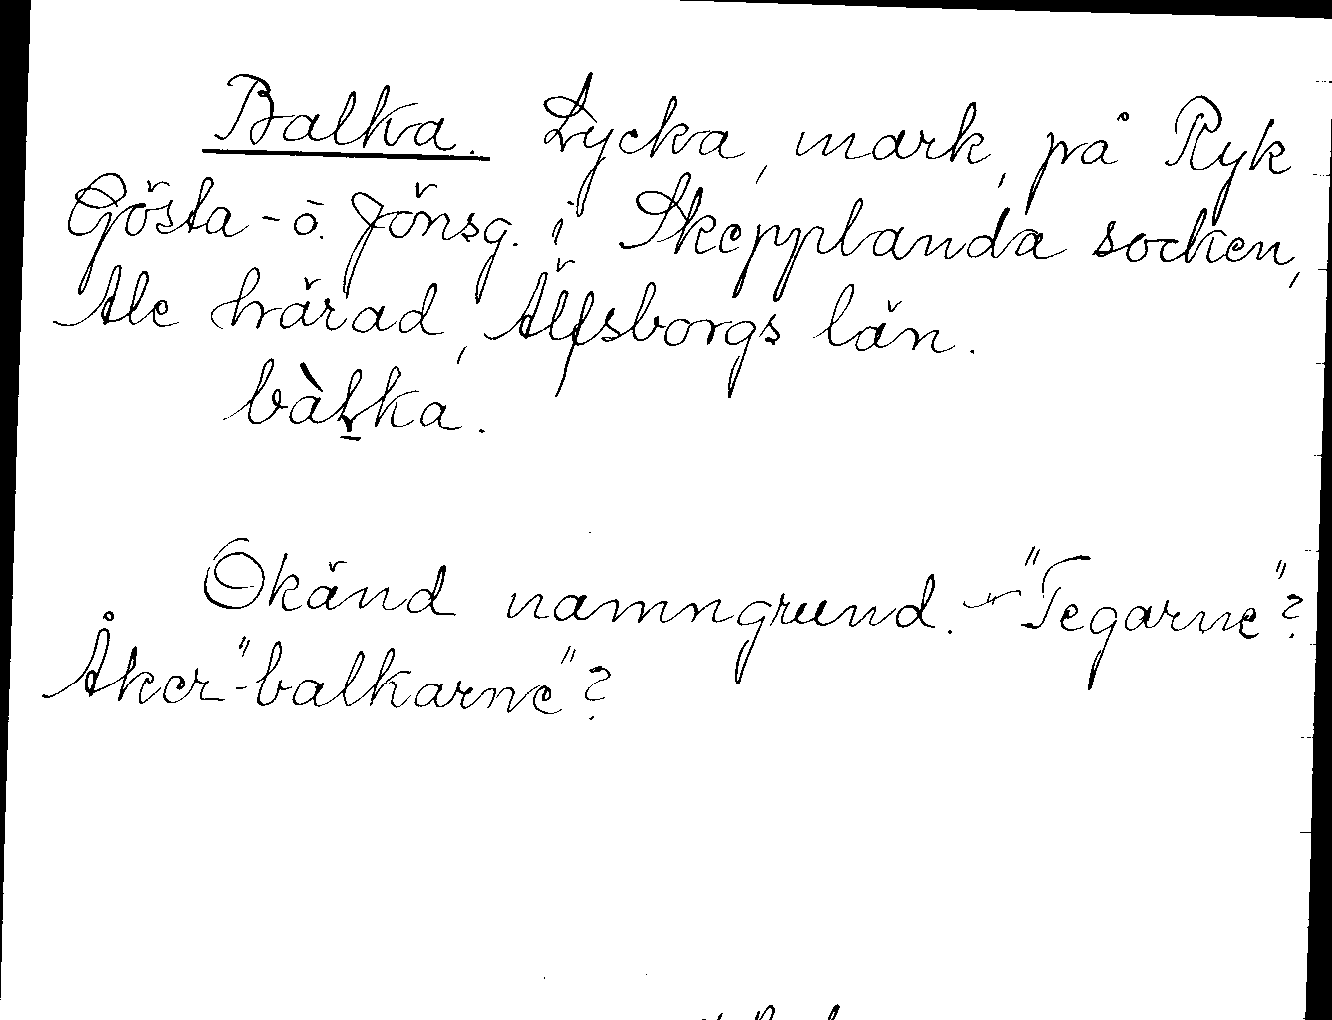 Balka. Lycka, mark, på Ryk
Gösta- ō. Jönsg. i Skepplanda socken,
Ale härad, Älfsborgs län.
bàḻka.
Okänd namngrund. - "Tegarne"?
Åker"-balkarne"?